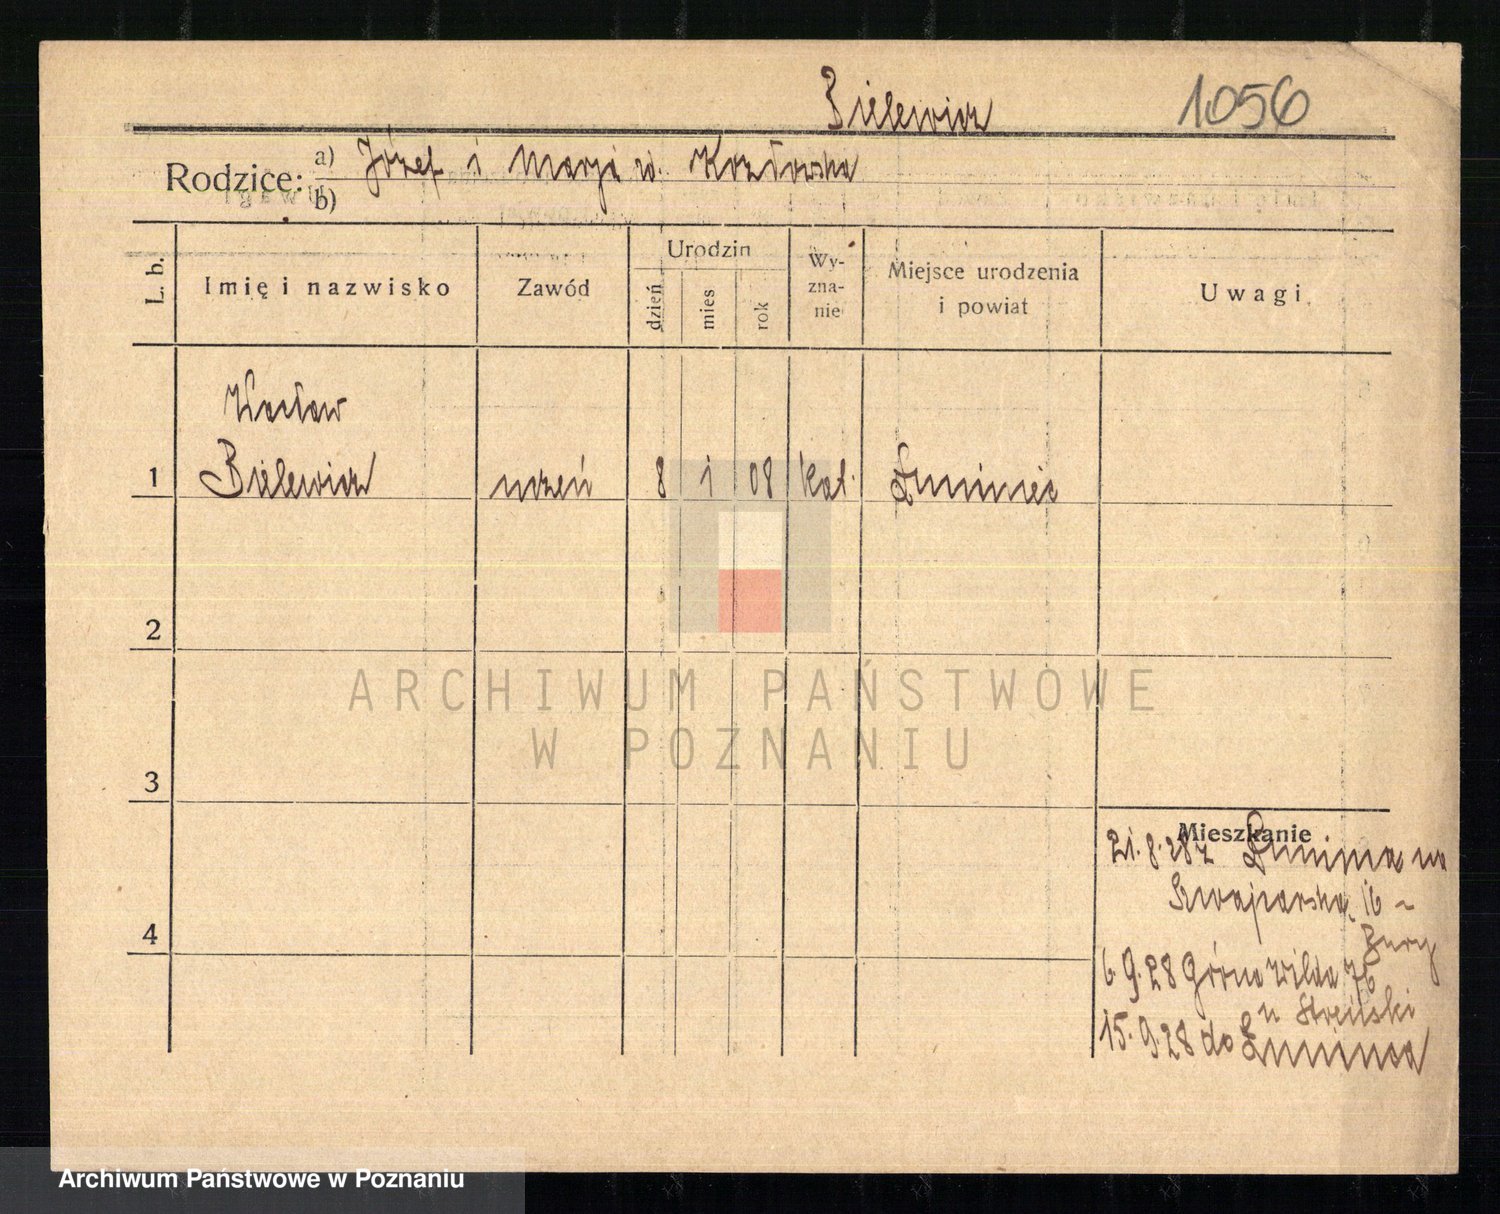 Bielewicz
1056
Rodzice: a) Józef i Marja zd. Kozłowska
b)
L. b.
Imię i nazwisko
Zawód
Urodzin
dzień
mies
rok
Wy-
zna-
nie
Miejsce urodzenia
i powiat
Uwagi
Wacław
1 Bielewicz uczeń 8 1 08 kat.
2
3
4
Mieszkanie
21.8.28 z na
Szwajcarska 16 -
6.9.28 Górna Wilda 76
u
15.9.28 do
ARCHIWUM PAŃSTWOWE
W POZNANIU
Archiwum Państwowe w Poznaniu